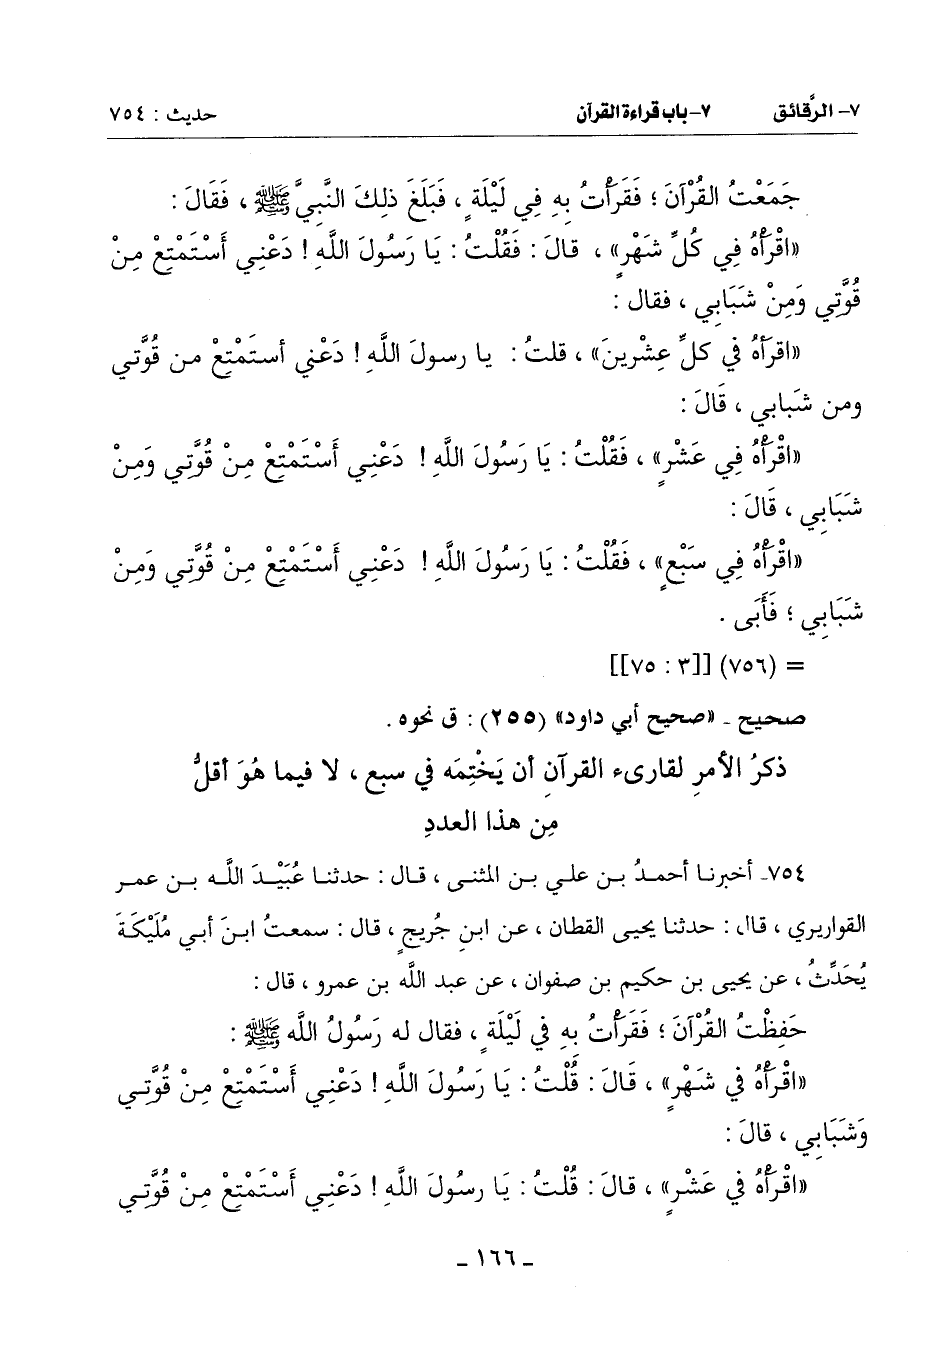 ٧- الرَّقائق ٧- باب قراءة القرآن حديث : ٧٥٤
جَمَعْتُ القُرْآنَ ؛ فَقَرَأْتُ بِهِ فِي لَيْلَةٍ ، فَبَلَغَ ذلِكَ النَّبِيَّ ﷺ ، فَقَالَ :
«اقْرَأْهُ فِي كُلِّ شَهْرٍ» ، قالَ : فَقُلْتُ : يَا رَسُولَ اللَّهِ ! دَعْنِي أَسْتَمْتِعْ مِنْ
قُوَّتِي وَمِنْ شَبَابِي ، فقال :
«اقرَأْهُ في كلِّ عِشْرينَ» ، قلتُ : يا رسولَ اللَّهِ ! دَعْني أستَمْتِعْ من قُوَّتي
ومن شَبابي ، قَالَ :
«اقْرَأْهُ فِي عَشْرٍ» ، فَقُلْتُ : يَا رَسُولَ اللَّهِ ! دَعْنِي أَسْتَمْتِعْ مِنْ قُوَّتِي وَمِنْ
شَبَابِي ، قَالَ :
«اقْرَأْهُ فِي سَبْعٍ» ، فَقُلْتُ : يَا رَسُولَ اللَّهِ ! دَعْنِي أَسْتَمْتِعْ مِنْ قُوَّتِي وَمِنْ
شَبَابِي ؛ فَأَبَى .
= (٧٥٦) [[٣ : ٧٥]]
صحيح ـ «صحيح أبي داود» (٢٥٥) : ق نحوه .
ذكرُ الأمرِ لقارىء القرآنِ أن يَخْتِمَه في سبع ، لا فيما هُوَ أقلُّ
مِن هذا العددِ
٧٥٤ـ أخبرنا أحمدُ بن علي بن المثنى ، قال : حدثنا عُبَيْدَ اللَّه بن عمر
القواريري ، قال : حدثنا يحيى القطان ، عن ابنِ جُريجٍ ، قال : سمعتُ ابنَ أبي مُلَيْكَةَ
يُحَدِّثُ ، عن يحيى بن حكيم بن صفوان ، عن عبد اللَّه بن عمرو ، قال :
حَفِظْتُ القُرْآنَ ؛ فَقَرَأْتُ بِهِ في لَيْلَةٍ ، فقال له رَسُولُ اللَّه ﷺ :
«اقْرَأْهُ في شَهْرٍ» ، قَالَ : قُلْتُ : يَا رَسُولَ اللَّهِ ! دَعْنِي أَسْتَمْتِعْ مِنْ قُوَّتِي
وَشَبَابِي ، قالَ :
«اقْرَأْهُ في عَشْرٍ» ، قالَ : قُلْتُ : يَا رسُولَ اللَّهِ ! دَعْنِي أَسْتَمْتِعْ مِنْ قُوَّتِي
ـ ١٦٦ ـ